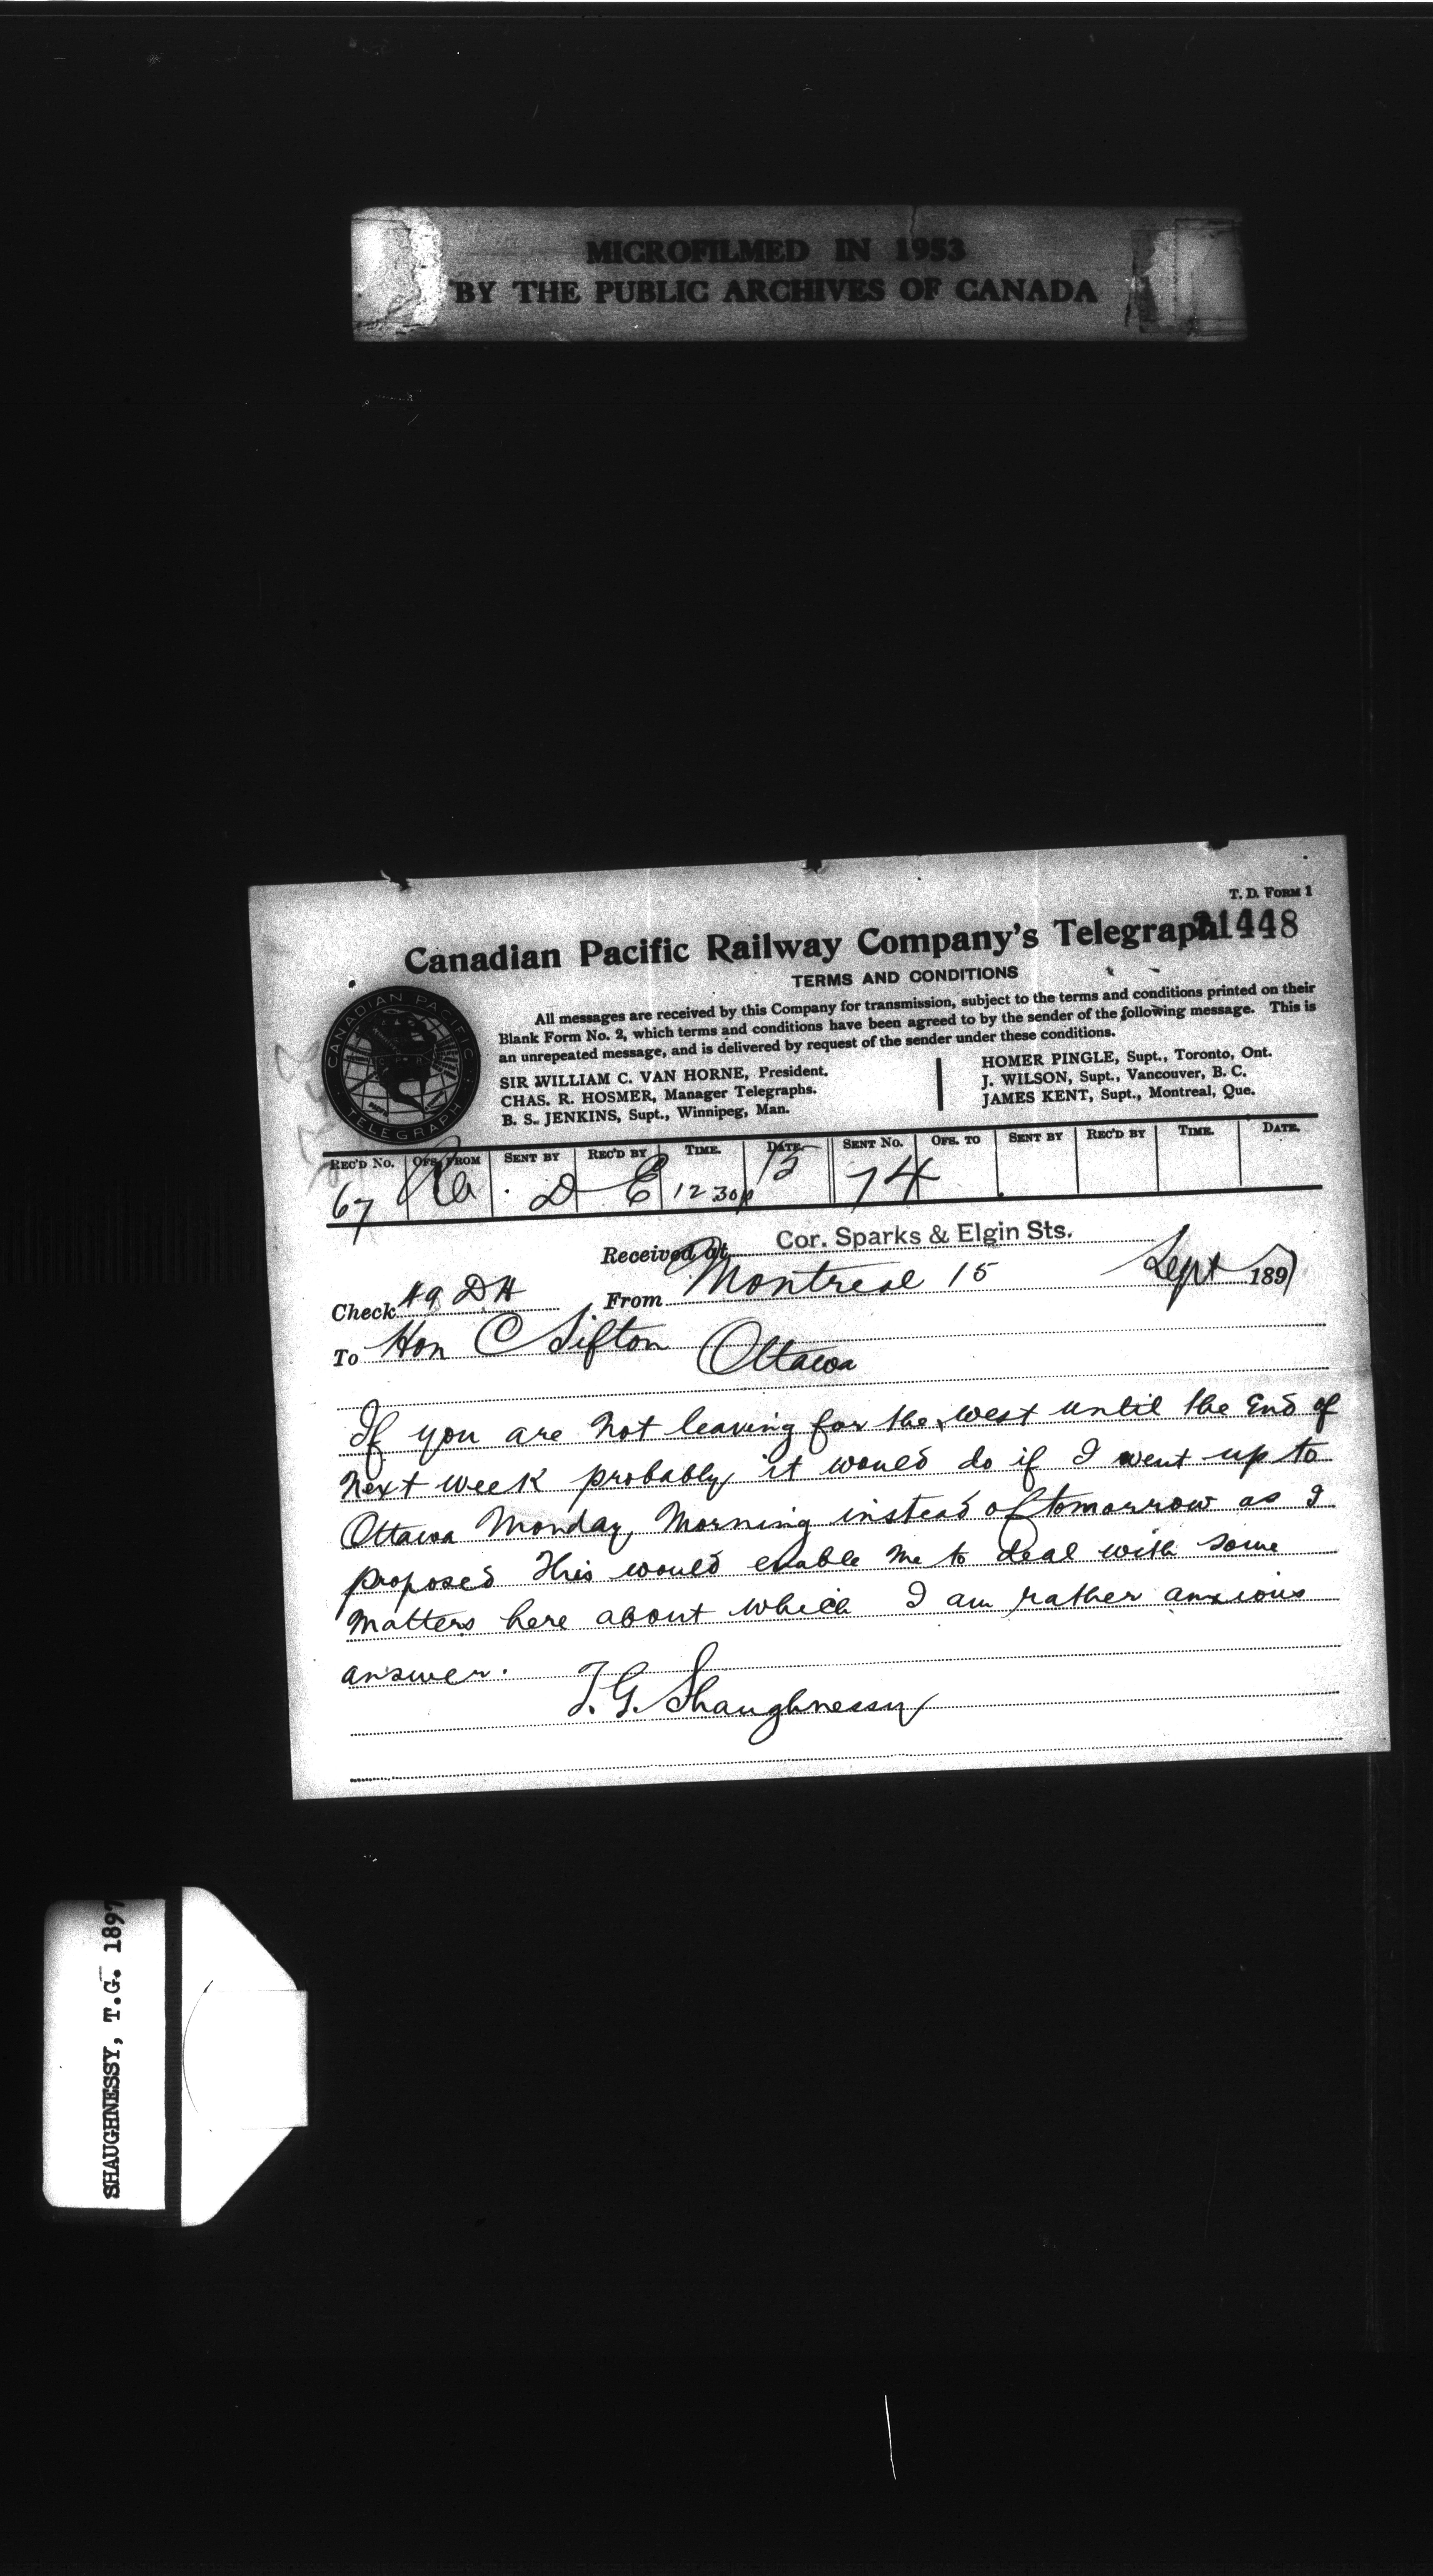 MICROFILMED IN 1953
BY THE PUBLIC ARCHIVES OF CANADA
T. D. FORM 1
Canadian Pacific Railway Company's Telegraph
21448
TERMS AND CONDITIONS
CANADIAN PACIFIC
TELEGRAPH
All messages are received by this Company for transmission, subject to the terms and conditions printed on their
Blank Form No. 2, which terms and conditions have been agreed to by the sender of the following message. This is
an unrepeated message, and is delivered by request of the sender under these conditions.
SIR WILLIAM C. VAN HORNE, President.
CHAS. R. HOSMER, Manager Telegraphs.
B. S. JENKINS, Supt., Winnipeg, Man.
HOMER PINGLE, Supt., Toronto, Ont.
J. WILSON, Supt., Vancouver, B. C.
JAMES KENT, Supt., Montreal, Que.
REC'D NO. OFS. FROM SENT BY REC'D BY TIME. DATE. SENT NO. OFS. TO SENT BY REC'D BY TIME. DATE.
67 D E 12 30p 15 74
Received at Cor. Sparks & Elgin Sts.
Check 49 DH From Montreal 15 Sept 1897
To Hon C Sifton Ottawa
If you are not leaving for the west until the End of
next week probably it would do if I went up to
Ottawa Monday Morning instead of tomorrow as I
proposed This would enable me to deal with some
matters here about which I am rather anxious
answer.
T. G. Shaughnessy
SHAUGHNESSY, T.G. 1897